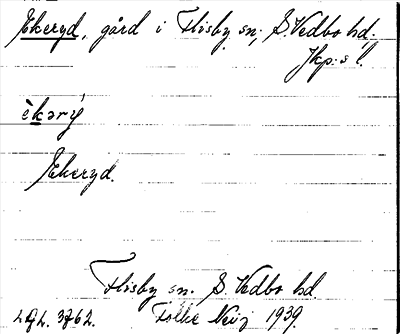 Ekeryd, gård i Flisby sn; S. Vedbo hd.
Jkp:s l.
èkərý
Ekeryd.
Flisby sn. S. Vedbo hd.
Folke 1939.